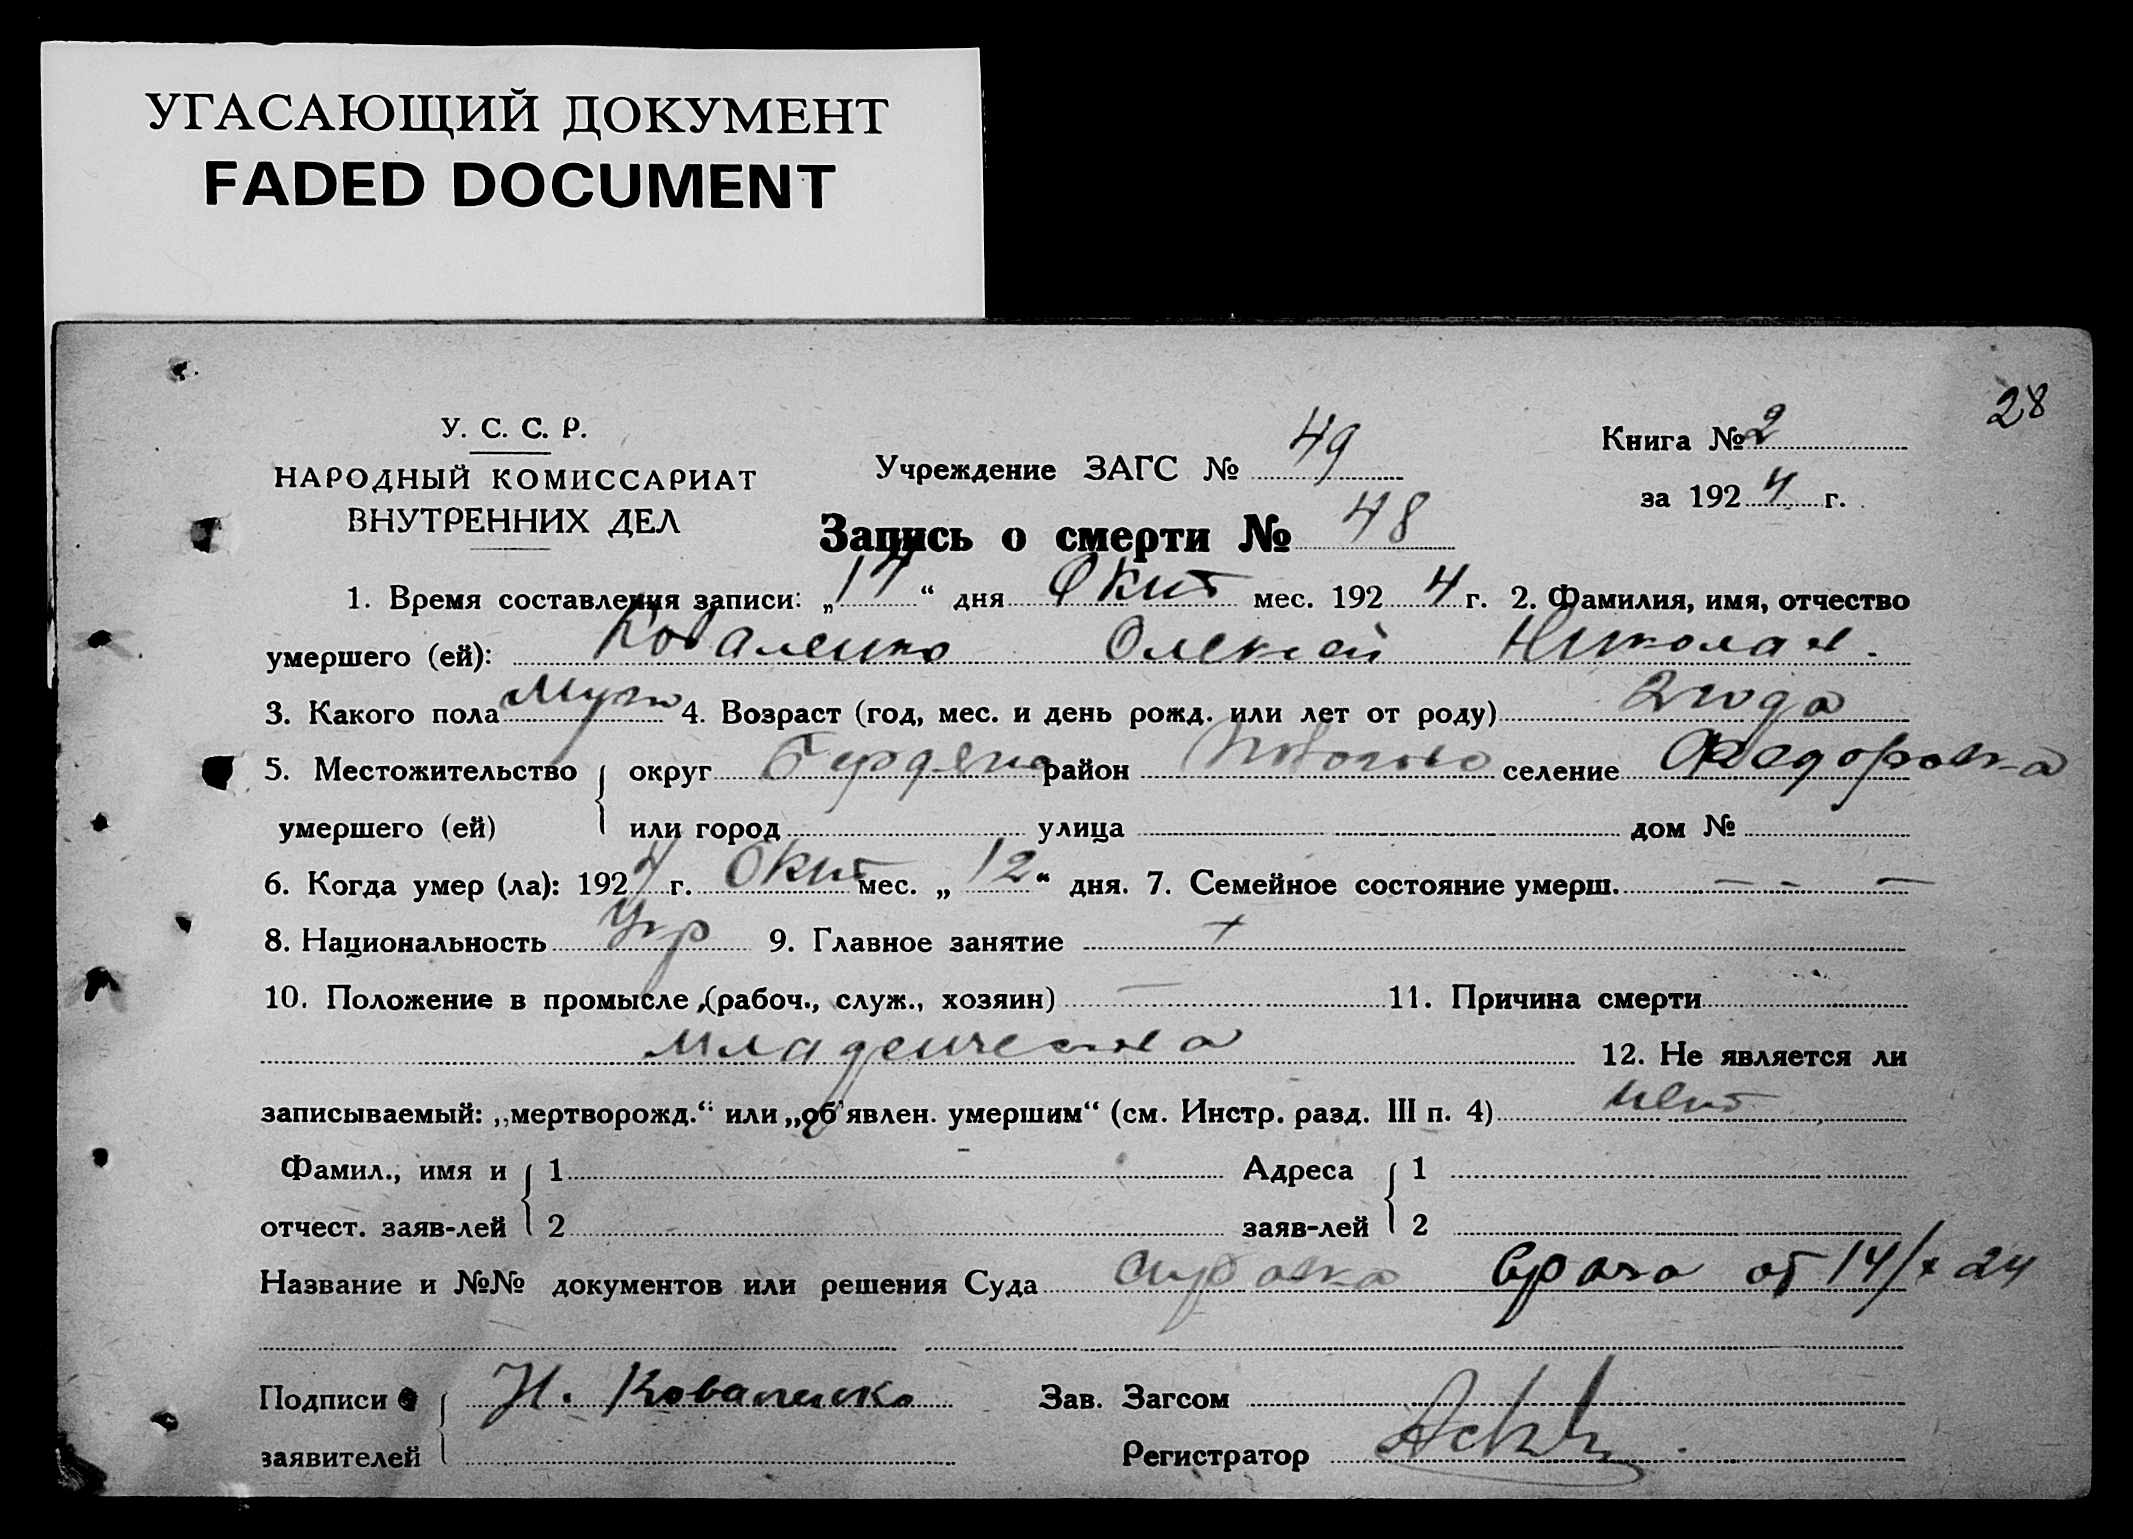 УГАСАЮЩИЙ ДОКУМЕНТ
FADED DOCUMENT
28
У. С. С. Р.
НАРОДНЫЙ КОМИССАРИАТ
ВНУТРЕННИХ ДЕЛ
Учреждение ЗАГС № 49
Книга № 2
за 1924 г.
Запись о смерти № 48
1. Время составления записи: „14“ дня Окт мес. 1924 г. 2. Фамилия, имя, отчество
умершего (ей): Коваленко Олексей Николаев.
3. Какого пола Муж 4. Возраст (год, мес. и день рожд. или лет от роду) 2 года
5. Местожительство округ Бердянс район селение Федоровка
умершего (ей) или город улица дом №
6. Когда умер (ла): 1924 г. Окт мес. „12“ дня. 7. Семейное состояние умерш. – – –
8. Национальность Укр 9. Главное занятие +
10. Положение в промысле (рабоч., служ., хозяин) – 11. Причина смерти
младенческая 12. Не является ли
записываемый: „мертворожд.“ или „об'явлен. умершим“ (см. Инстр. разд. III п. 4) нет
Фамил., имя и 1 Адреса 1
отчест. заяв-лей 2 заяв-лей 2
Название и №№ документов или решения Суда справка врача от 14/x 24
Подписи Н. Коваленко Зав. Загсом
заявителей Регистратор